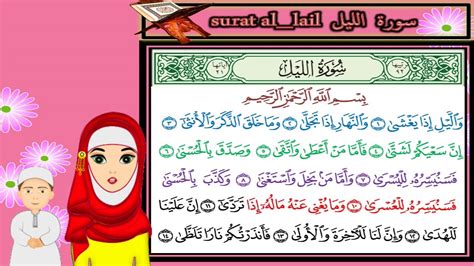 surat al_lail سورة الليل
ترتيبها ٩٢ سُورَةُ اللَّيْلِ آياتها ٢١
بِسْمِ اللَّهِ الرَّحْمَٰنِ الرَّحِيمِ
وَاللَّيْلِ إِذَا يَغْشَىٰ ١ وَالنَّهَارِ إِذَا تَجَلَّىٰ ٢ وَمَا خَلَقَ الذَّكَرَ وَالْأُنثَىٰ ٣
إِنَّ سَعْيَكُمْ لَشَتَّىٰ ٤ فَأَمَّا مَنْ أَعْطَىٰ وَاتَّقَىٰ ٥ وَصَدَّقَ بِالْحُسْنَىٰ ٦
فَسَنُيَسِّرُهُ لِلْيُسْرَىٰ ٧ وَأَمَّا مَن بَخِلَ وَاسْتَغْنَىٰ ٨ وَكَذَّبَ بِالْحُسْنَىٰ ٩
فَسَنُيَسِّرُهُ لِلْعُسْرَىٰ ١٠ وَمَا يُغْنِي عَنْهُ مَالُهُ إِذَا تَرَدَّىٰ ١١ إِنَّ عَلَيْنَا
لَلْهُدَىٰ ١٢ وَإِنَّ لَنَا لَلْآخِرَةَ وَالْأُولَىٰ ١٣ فَأَنذَرْتُكُمْ نَارًا تَلَظَّىٰ ١٤